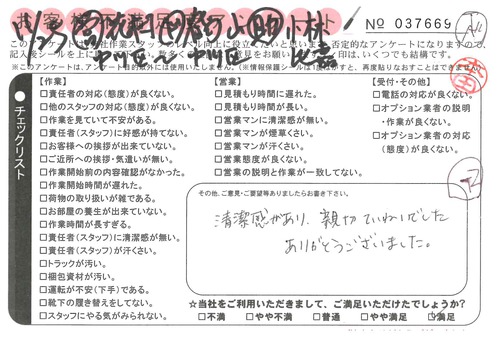 No 037669
このアンケートは
作業スタッフのレベル向上に役立てたいと思います。否定的なアンケートになりますので、
【作業】
□責任者の対応(態度)が良くない。
□他のスタッフの対応(態度)が良くない。
□作業を見ていて不安がある。
□責任者(スタッフ)に好感が持てない。
□お客様への挨拶が出来ていない。
□ご近所への挨拶・気遣いが無い。
□作業開始前の内容確認がなかった。
□作業開始時間が遅れた。
□荷物の取り扱いが雑である。
□お部屋の養生が出来ていない。
□作業時間が長すぎる。
□責任者(スタッフ)に清潔感が無い。
□責任者(スタッフ)が汗くさい。
□トラックが汚い。
□梱包資材が汚い。
□運転が不安(下手)である。
□靴下の履き替えをしてない。
□スタッフにやる気がみられない。
【営業】
□見積もり時間に遅れた。
□見積もり時間が長い。
□営業マンに清潔感が無い。
□営業マンが煙草くさい。
□営業マンが汗くさい。
□営業態度が良くない。
□営業の説明と作業が一致してない。
【受付・その他】
□電話の対応が良くない。
□オプション業者の説明
・作業が良くない。
□オプション業者の対応
(態度)が良くない。
チェックリスト
その他、ご意見・ご要望等ありましたらお書き下さい。
清潔感があり、親切ていねいでした
ありがとうございました。
☆当社をご利用いただきまして、ご満足いただけたでしょうか?
□不満 □やや不満 □普通 □やや満足 □満足